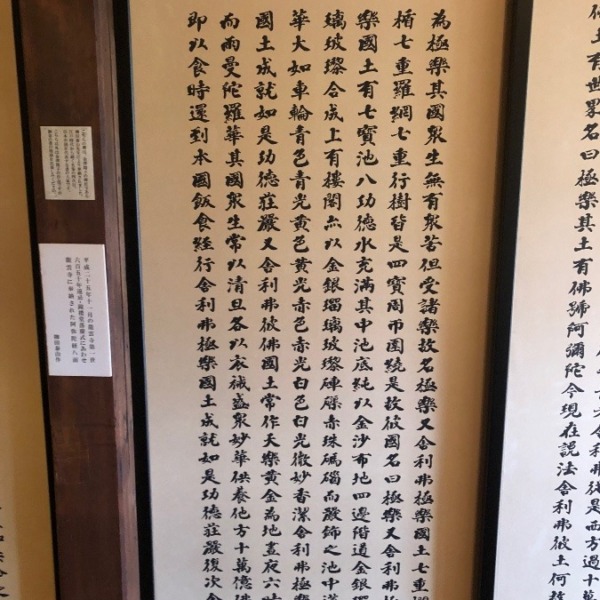 利弗從是西方過十萬
土有世界名曰極樂其土有佛號阿彌陀今現在説法舍利弗彼土何故
為極樂其國衆生無有衆苦但受諸樂故名極樂又舍利弗極樂國土七重
楯七重羅網七重行樹皆是四寶周帀圍繞是故彼國名曰極樂又舍利弗極
樂國土有七寶池八功德水充滿其中池底純以金沙布地四邊階道金銀
璃玻瓈合成上有樓閣亦以金銀瑠璃玻瓈硨磲赤珠碼碯而嚴飾之池中蓮
華大如車輪青色青光黄色黄光赤色赤光白色白光微妙香潔舍利弗極樂
國土成就如是功德莊嚴又舍利弗彼佛國土常作天樂黄金為地晝夜六時
而雨曼陀羅華其國衆生常以清旦各以衣裓盛衆妙華供養他方十萬億佛
即以食時還到本國飯食經行舍利弗極樂國土成就如是功德莊嚴復次舍
平成二十五年十一月の龍雲寺第一世
六百五十年遠忌・落慶式にあわせ
龍雲寺に奉納された阿弥陀経八面